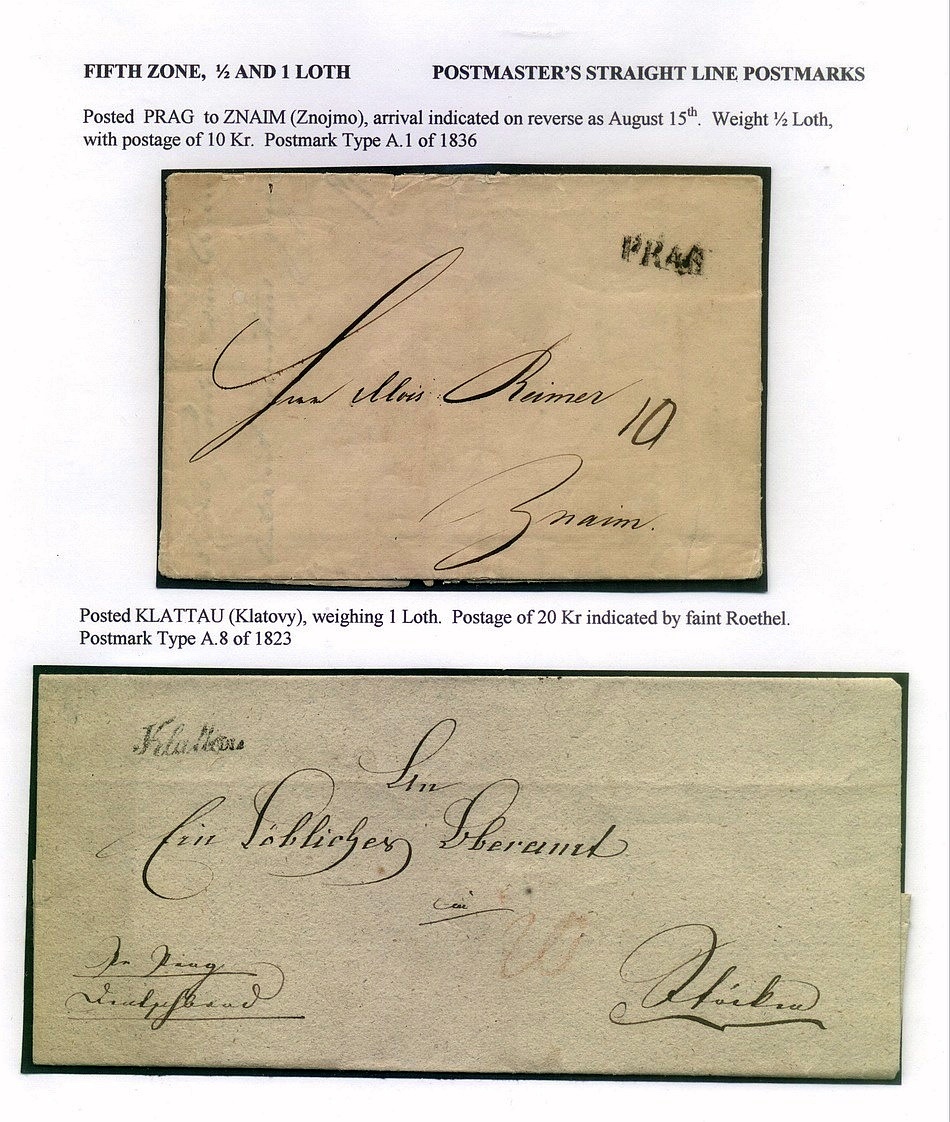 FIFTH ZONE, ½ AND 1 LOTH POSTMASTER'S STRAIGHT LINE POSTMARKS
Posted PRAG to ZNAIM (Znojmo), arrival indicated on reverse as August 15th. Weight ½ Loth,
with postage of 10 Kr. Postmark Type A.1 of 1836
PRAG
Herrn Alois Reimer
10
Znaim.
Posted KLATTAU (Klatovy), weighing 1 Loth. Postage of 20 Kr indicated by faint Roethel.
Postmark Type A.8 of 1823
Klattau
An
Ein Löbliches Oberamt
20
pr Prag
Deutschbrod
Stöcken